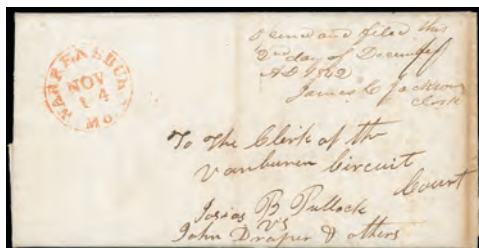 WARRENSBUR
NOV
14
Mo.
Opened and filed this
2nd day of December
AD 1842
James C Jackson
Clerk
To The Clerk of the
Vanburen Circuit
Court
Josias B Pullock
vs
John Draper & others